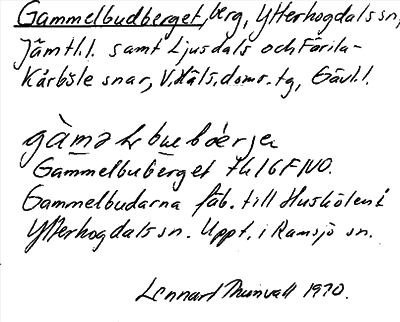 Gammelbudberget, berg, Ytterhogdals sn,
Jämtl.l. samt Ljusdals och Färila-
Kårböle snar, V. Häls. domr. tg, Gävl.l.
gàmə bubérje
Gammelbuberget tk 16F NO.
Gammelbudarna fäb. till Huskölen i
Ytterhogdals sn. Uppt. i Ramsjö sn.
Lennart Thunvall 1970.